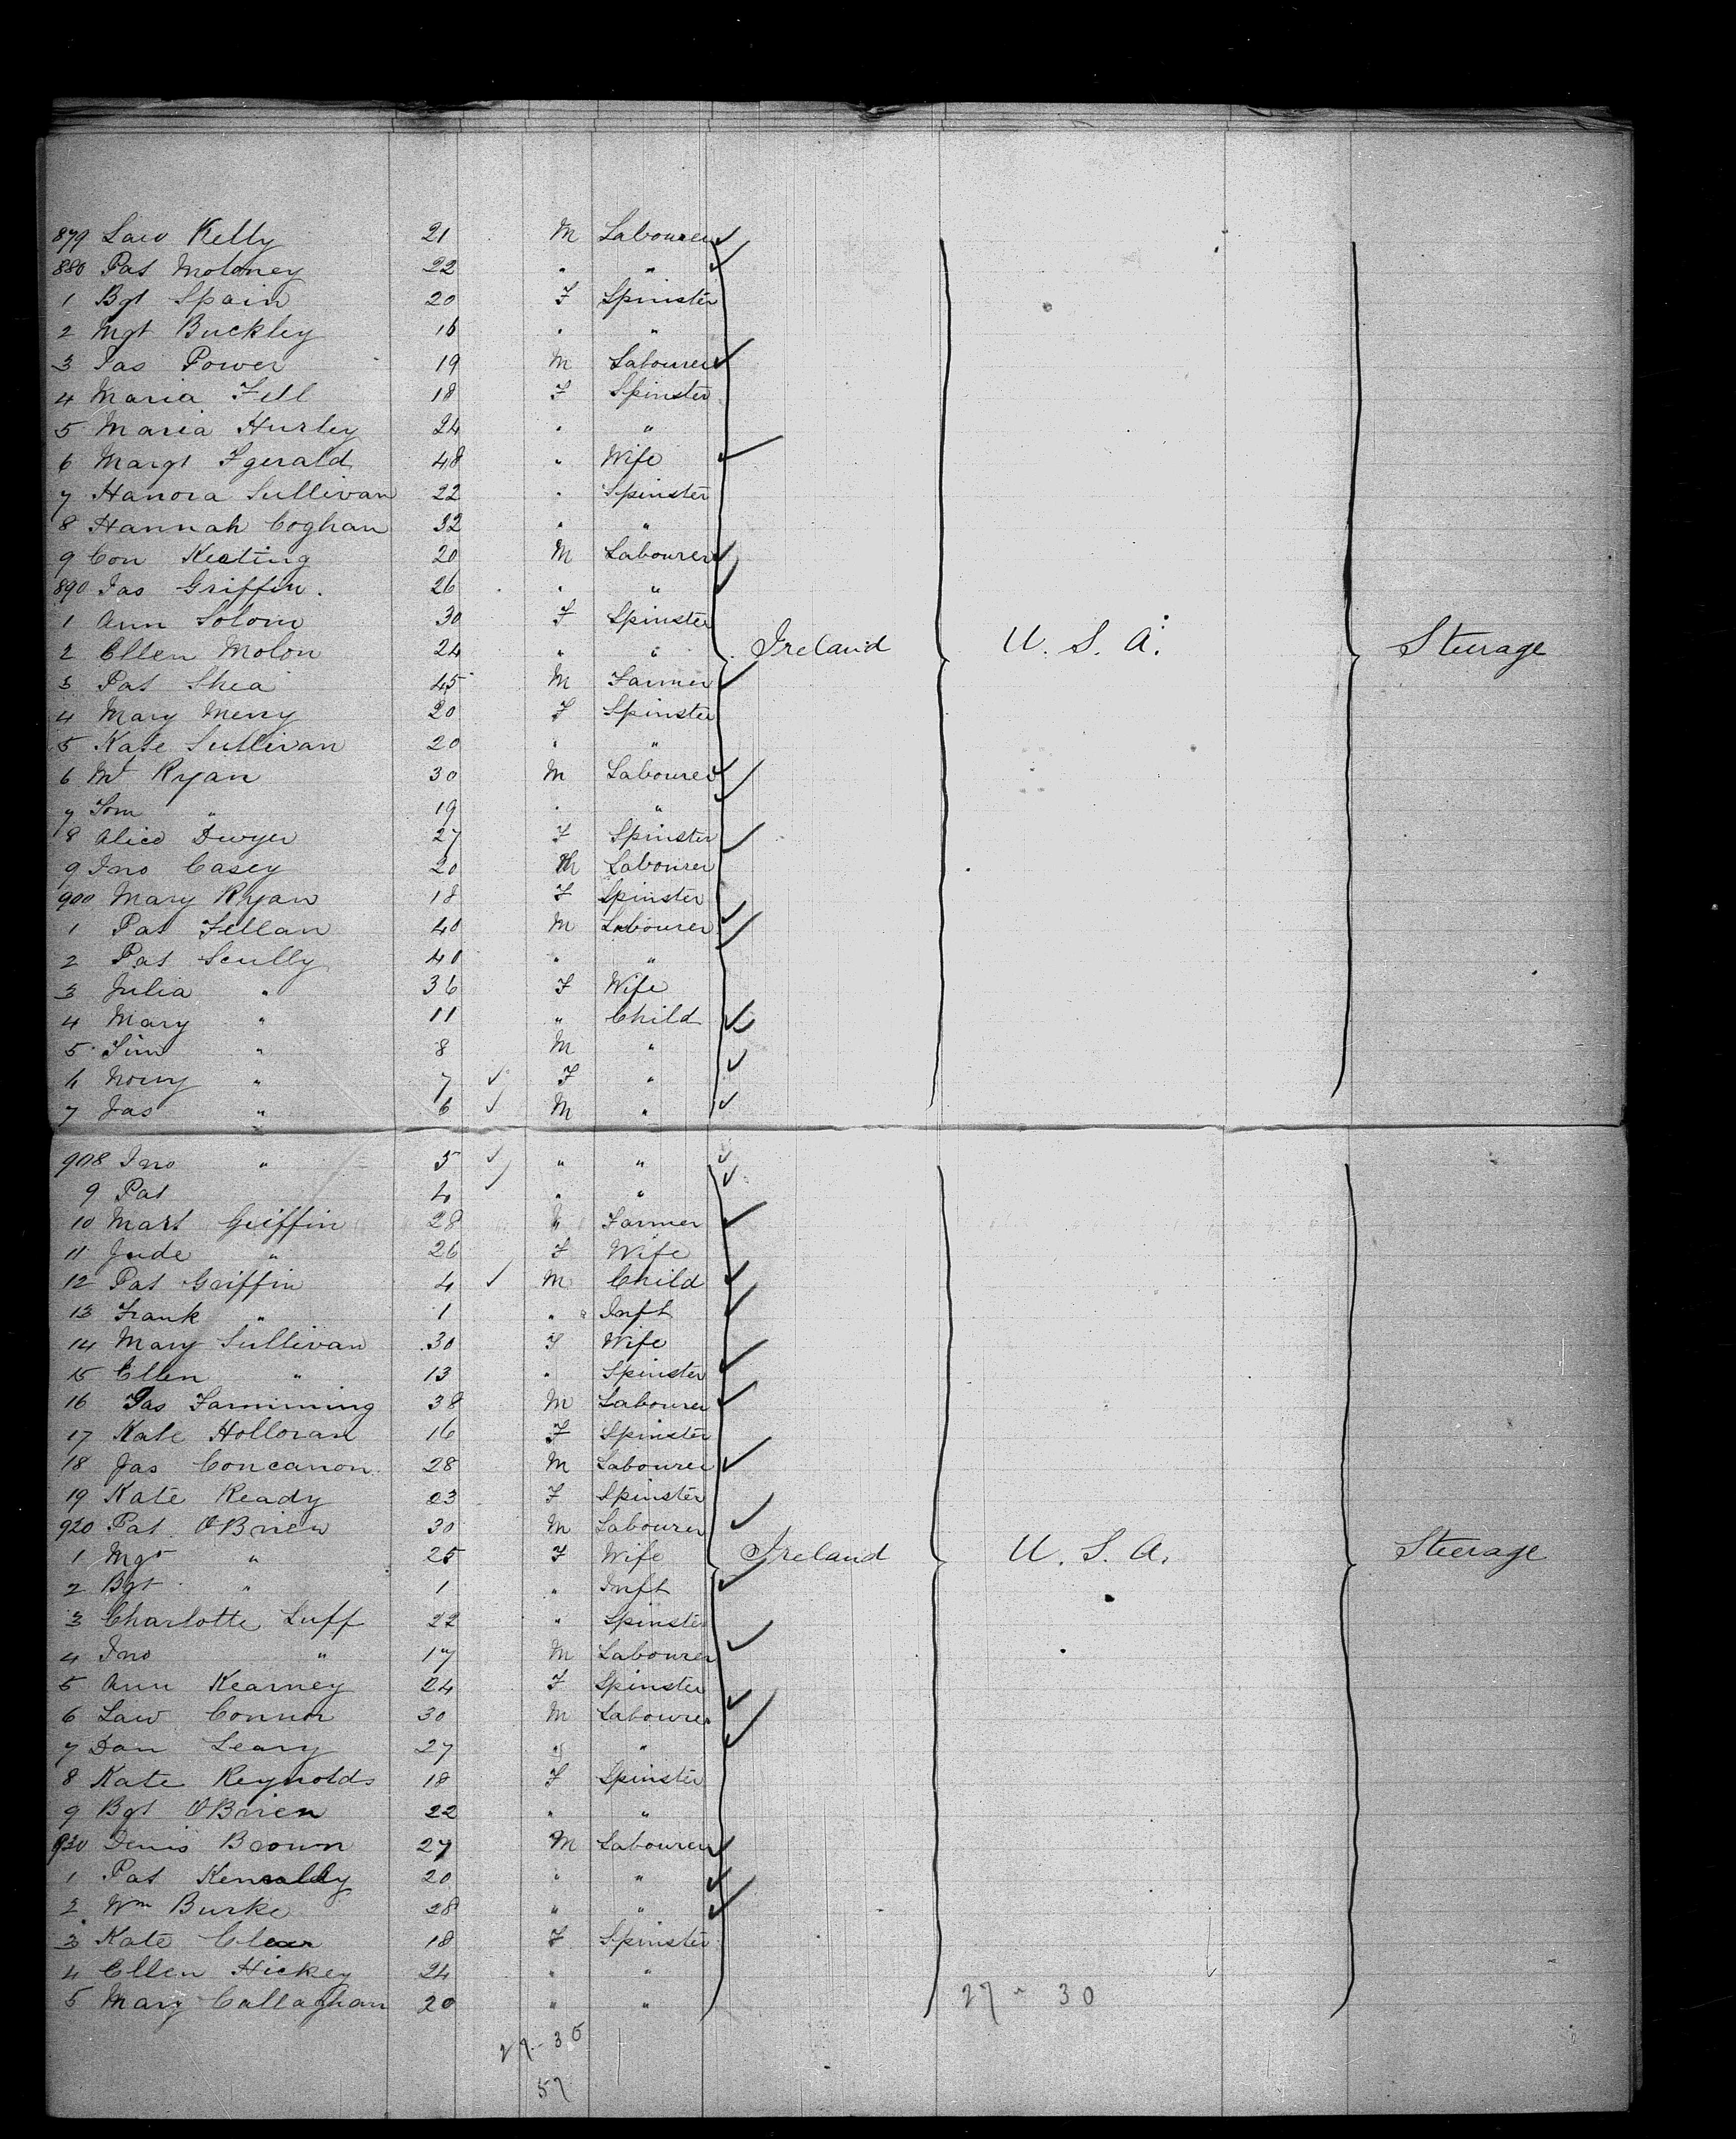 879 Law Kelly 21 M Labourer
880 Pat Moloney 22 " "
1 Bgt Spain 20 F Spinster
2 Mgt Buckley 16 " "
3 Jas Power 19 M Labourer
4 Maria Fell 18 F Spinster
5 Maria Hurley 24 " "
6 Margt Fgerald 48 " Wife
7 Hanora Sullivan 22 " Spinster
8 Hannah Coghan 32 " "
9 Con Keating 20 M Labourer
890 Jas Griffin. 26 " "
1 Ann Solom 30 F Spinster
2 Ellen Molon 24 " " Ireland U. S. A. Steerage
3 Pat Shea 45 M Farmer
4 Mary Merry 20 F Spinster
5 Kate Sullivan 20 " "
6 Mt Ryan 30 M Labourer
7 Tom " 19 " "
8 Alice Dwyer 27 F Spinster
9 Jno Casey 20 M Labourer
900 Mary Ryan 18 F Spinster
1 Pat Fellan 40 M Labourer
2 Pat Scully 40 " "
3 Julia " 36 F Wife
4 Mary " 11 " Child
5 Tim " 8 M "
6 Nony " 7 F "
7 Jas " 6 M "
908 Jno " 5 " "
9 Pat 4 " "
10 Mart Griffin 28 " Farmer
11 Jude " 26 F Wife
12 Pat Griffin 4 M Child
13 Frank " 1 " Inft
14 Mary Sullivan 30 F Wife
15 Ellen " 13 " Spinster
16 Jas Famining 38 M Labourer
17 Kate Holloran 16 F Spinster
18 Jas Concanon 28 M Labourer
19 Kate Ready 23 F Spinster
920 Pat OBrien 30 M Labourer
1 Mgt " 25 F Wife Ireland U. S. A. Steerage
2 Bgt " 1 " Inft
3 Charlotte Luff 22 " Spinster
4 Jno " 17 M Labourer
5 Ann Kearney 24 F Spinster
6 Law Connor 30 M Labourer
7 Dan Leary 27 " "
8 Kate Reynolds 18 F Spinster
9 Bgt OBrien 22 " "
930 Denis Brown 27 M Labourer
1 Pat Kenally 20 " "
2 Wm Burke 28 " "
3 Kate Clear 18 F Spinster
4 Ellen Hickey 24 " "
5 Mary Callaghan 20 " " 27 - 30
27 - 30
57